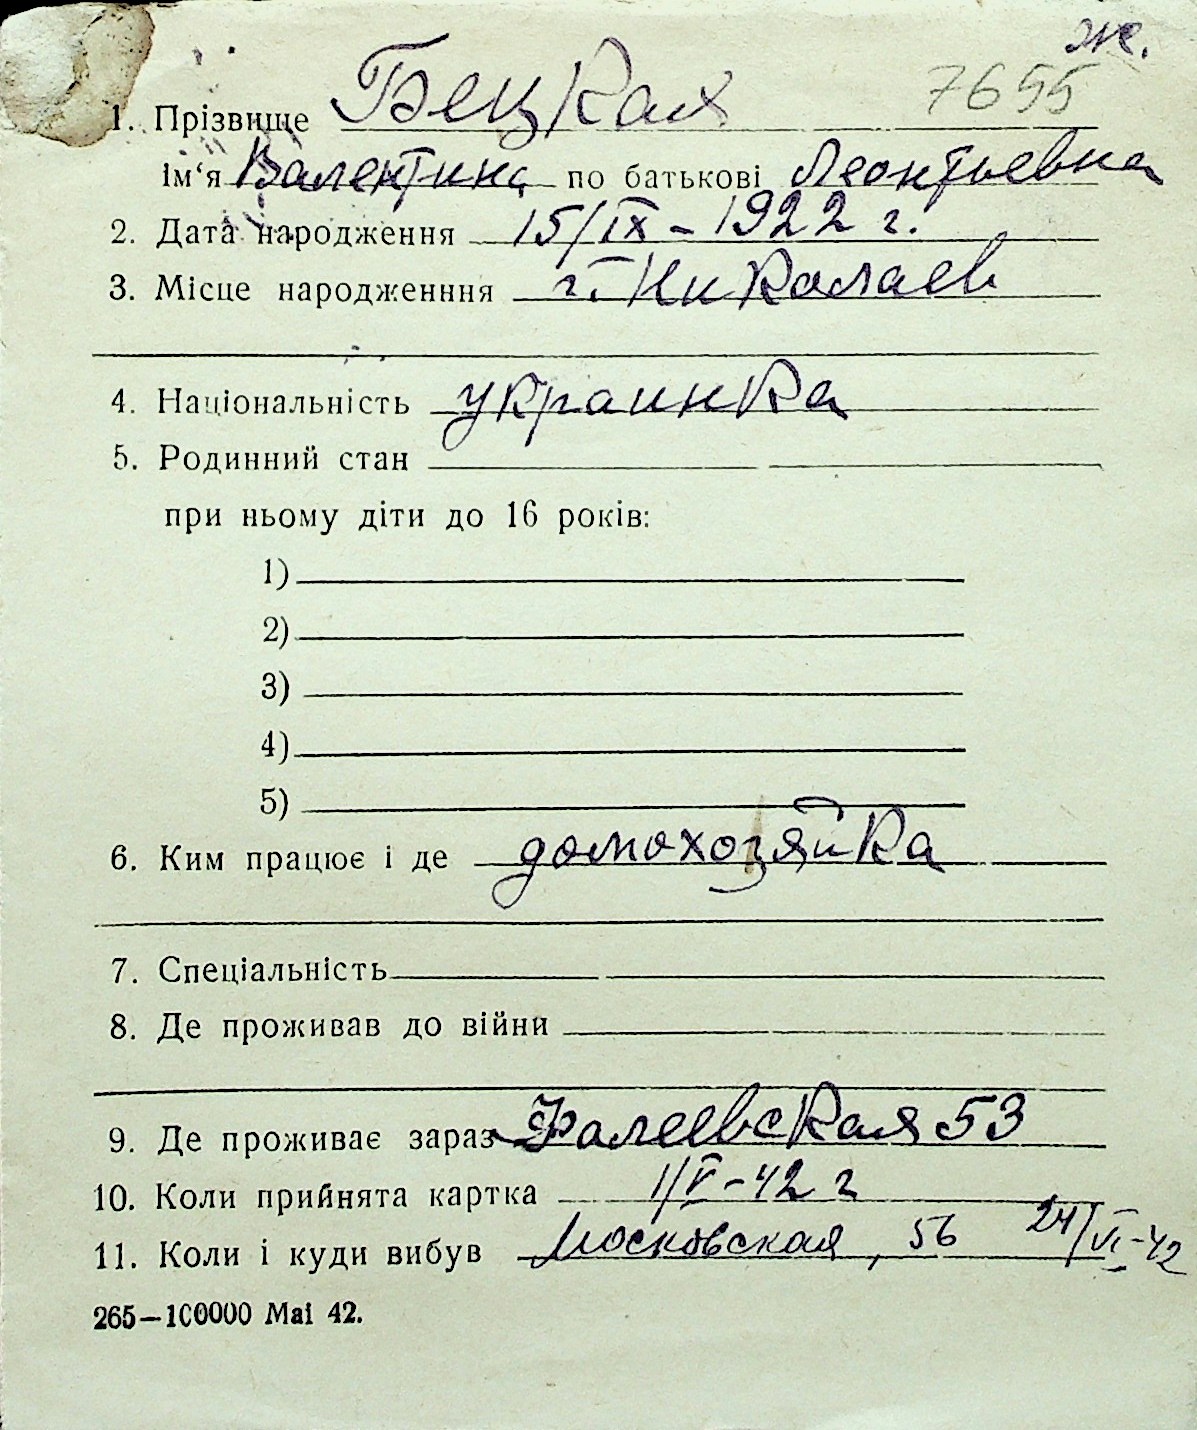 ж.
7655
1. Прізвище Бецкая
ім‘я Валентина по батькові Леонтьевна
2. Дата народження 15/IX – 1922 г.
3. Місце народженння г. Николаев
4. Національність украинка
5. Родинний стан
при ньому діти до 16 років:
1)
2)
3)
4)
5)
6. Ким працює і де домохозяйка
7. Спеціальність
8. Де проживав до війни
9. Де проживає зараз Фалеевская 53
10. Коли прийнята картка 1/V – 42 г
11. Коли і куди вибув Московская, 56 24/VI-42
265—100000 Mai 42.